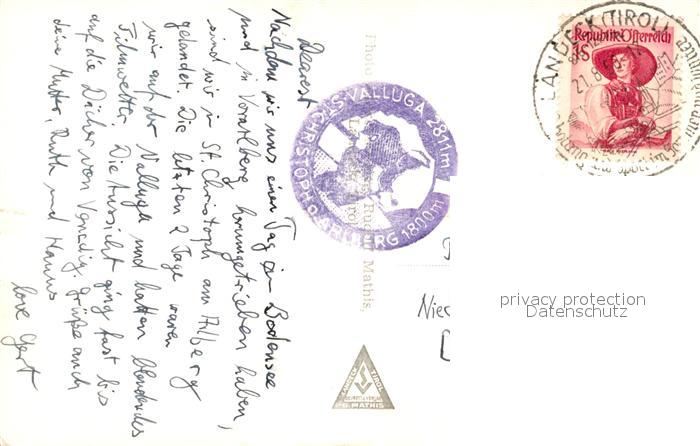 Dearest
Nachdem wir uns einen Tag am Bodensee
und in Vorarlberg herumgetrieben haben,
sind wir in St. Christoph am Arlberg
gelandet. Die letzten 2 Tage waren
wir auf der Valluga und hatten blendendes
Filmwetter. Die Aussicht ging fast bis
auf die Dächer von Venedig. Grüße auch
deine Mutter, Ruth und Hanns
love Gert
Photo
Rudolf Mathis,
VALLUGA 2811m
ARLBERG 1800m
LANDECK
TIROL
R. MATHIS
LANDECK (TIROL)
Republik Österreich
1S
21.8.
Nie
privacy protection
Datenschutz